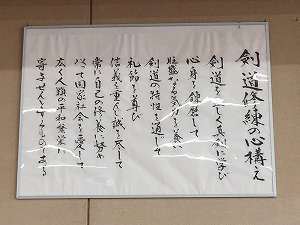 剣道修練の心構え
剣道を正しく真剣に学び
心身を錬磨して
旺盛なる気力を養い
剣道の特性を通して
礼節を尊び
信義を重んじ誠を尽して
常に自己の修養に努め
以って国家社会を愛して
広く人類の平和繁栄に
寄与せんとするものである